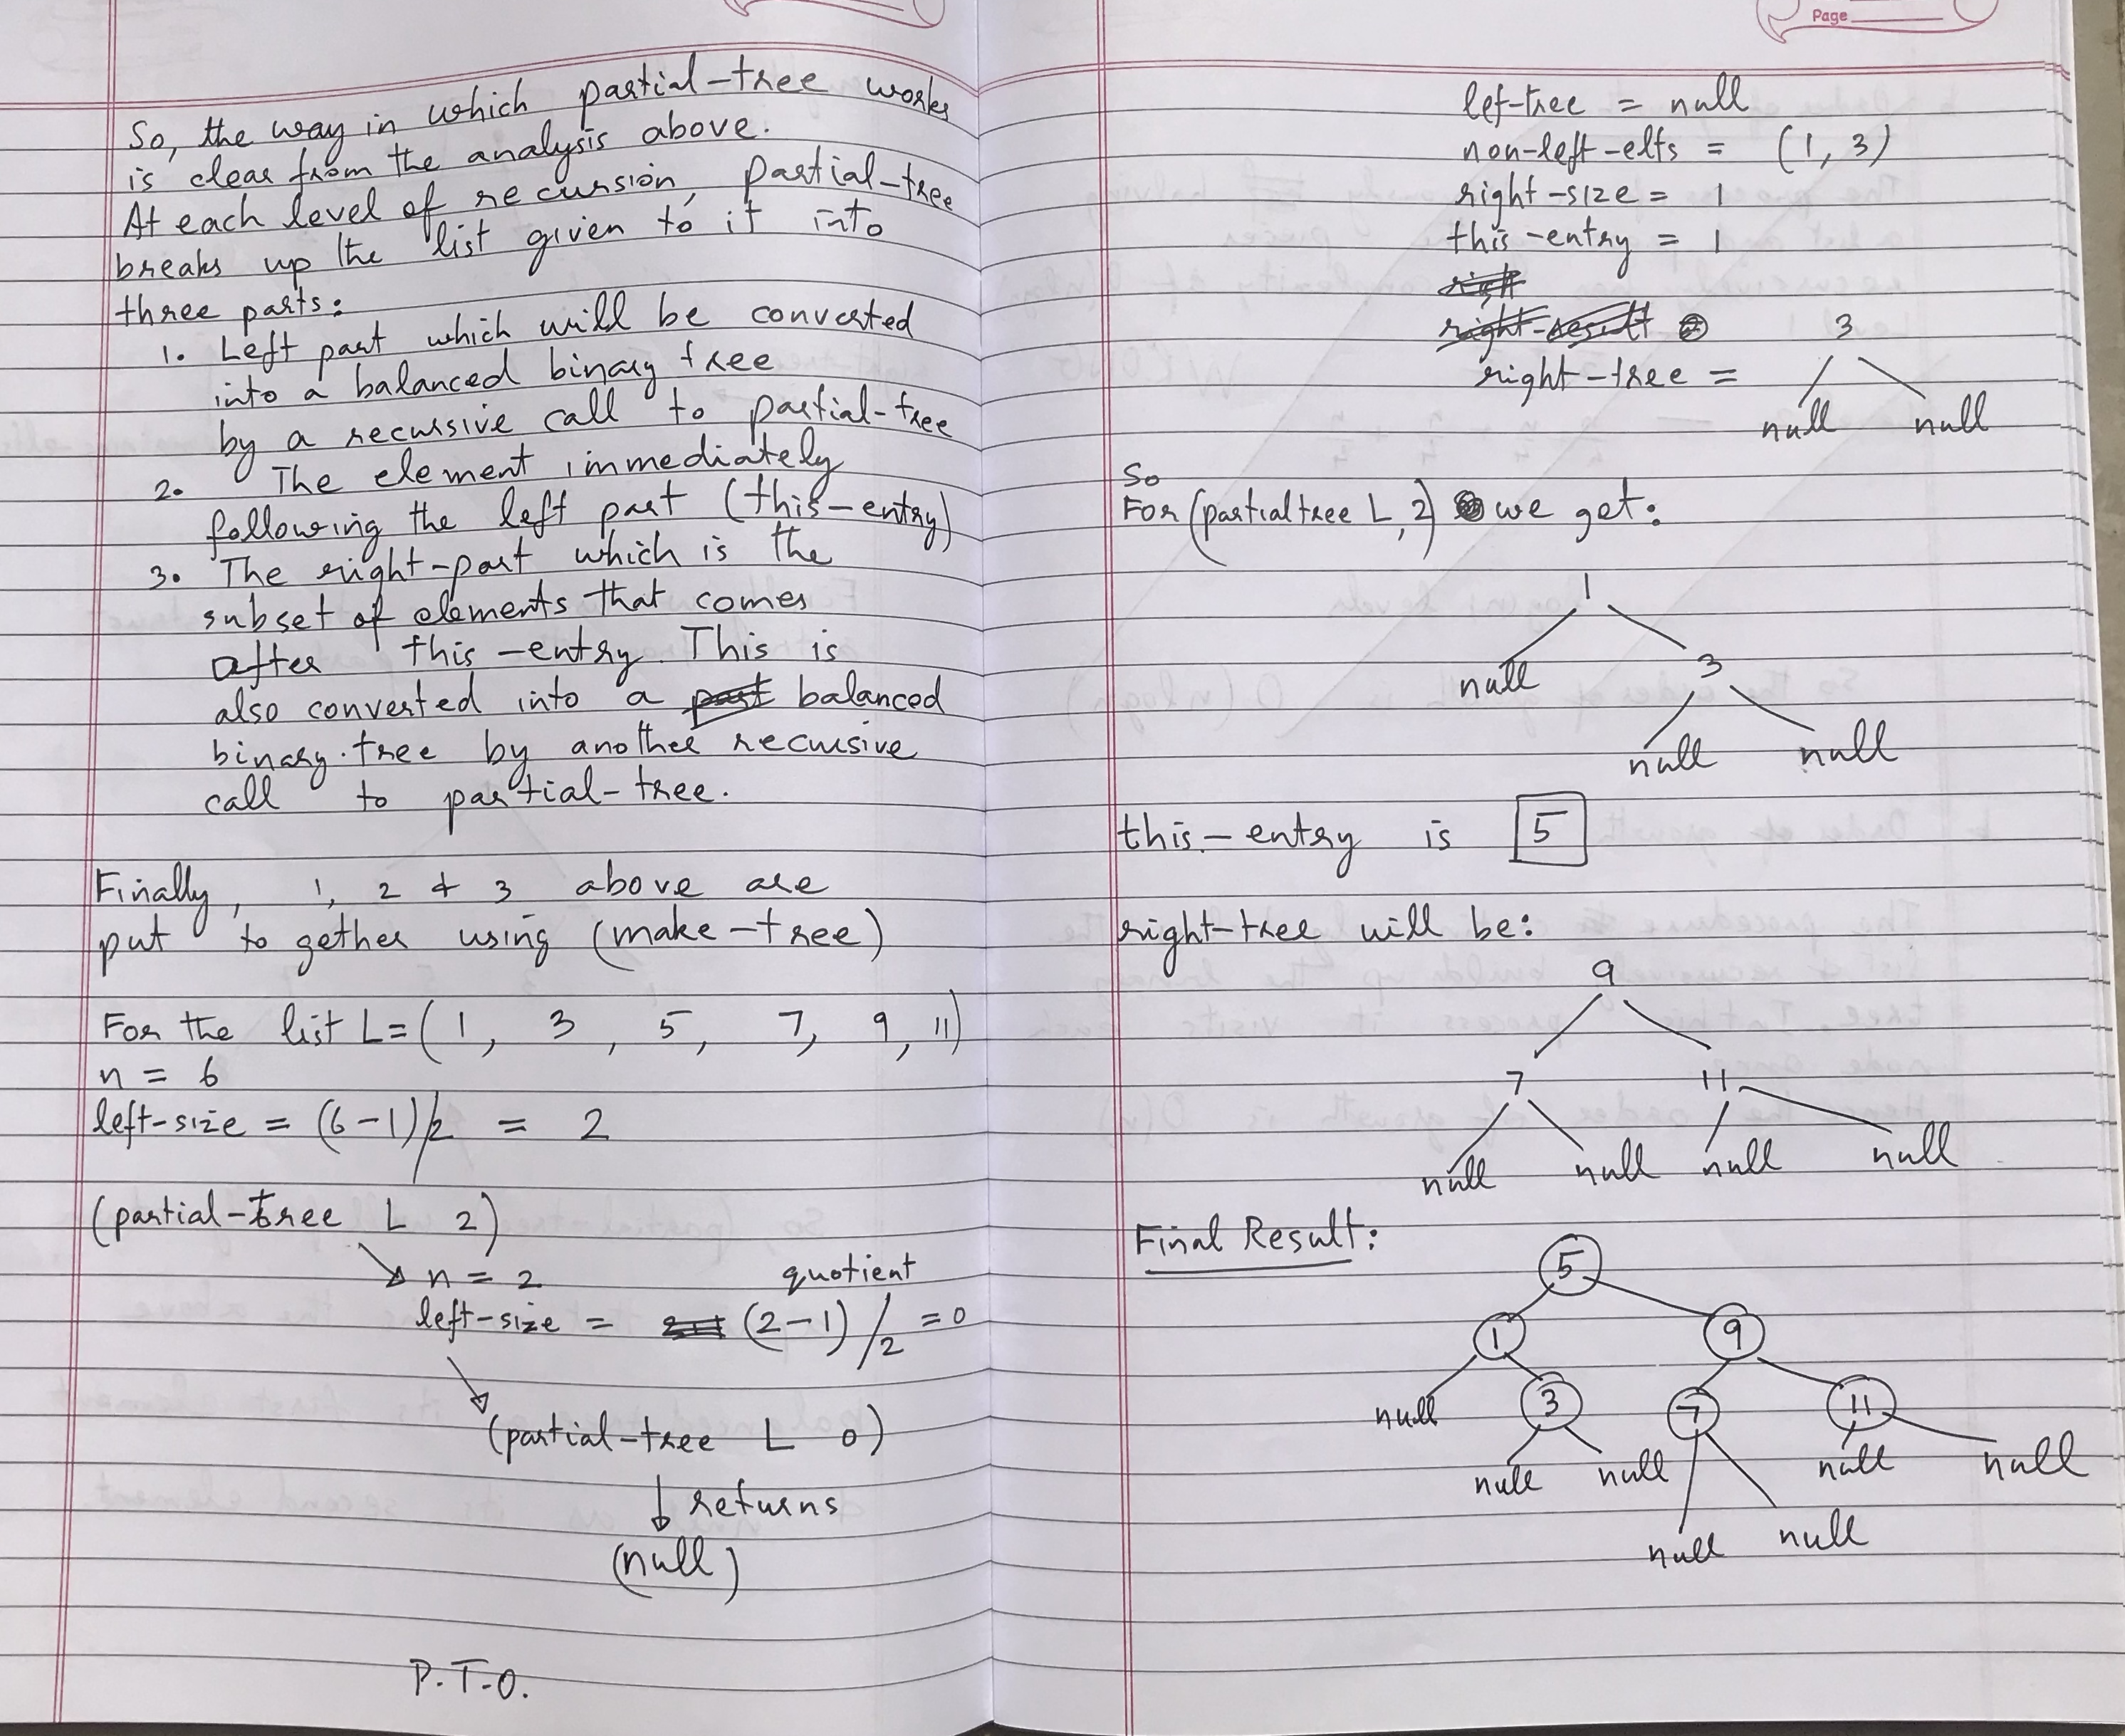 So, the way in which partial-tree works
is clear from the analysis above.
At each level of recursion, partial-tree
breaks up the list given to it into
three parts:
1. Left part which will be converted
into a balanced binary tree
by a recursive call to partial-tree
2. The element immediately
following the left part (this-entry)
3. The right-part which is the
subset of elements that comes
after this-entry. This is
also converted into a part balanced
binary tree by another recursive
call to partial-tree.
Finally, 1, 2 & 3 above are
put to gether using (make-tree)
For the list L = (1, 3, 5, 7, 9, 11)
n = 6
left-size = (6-1)/2 = 2
(partial-tree L 2)
n = 2
quotient
left-size = (2-1)/2 = 0
(partial-tree L 0)
returns
(null)
P.T.O.
Page
lef-tree = null
non-left-elts = (1, 3)
right-size = 1
this-entry = 1
right
right-result
3
right-tree =
null null
So
For (partialtree L, 2) we get:
1
null 3
null null
this-entry is 5
right-tree will be:
9
7 11
null null null null
Final Result:
5
1 9
null 3 7 11
null null null null
null null